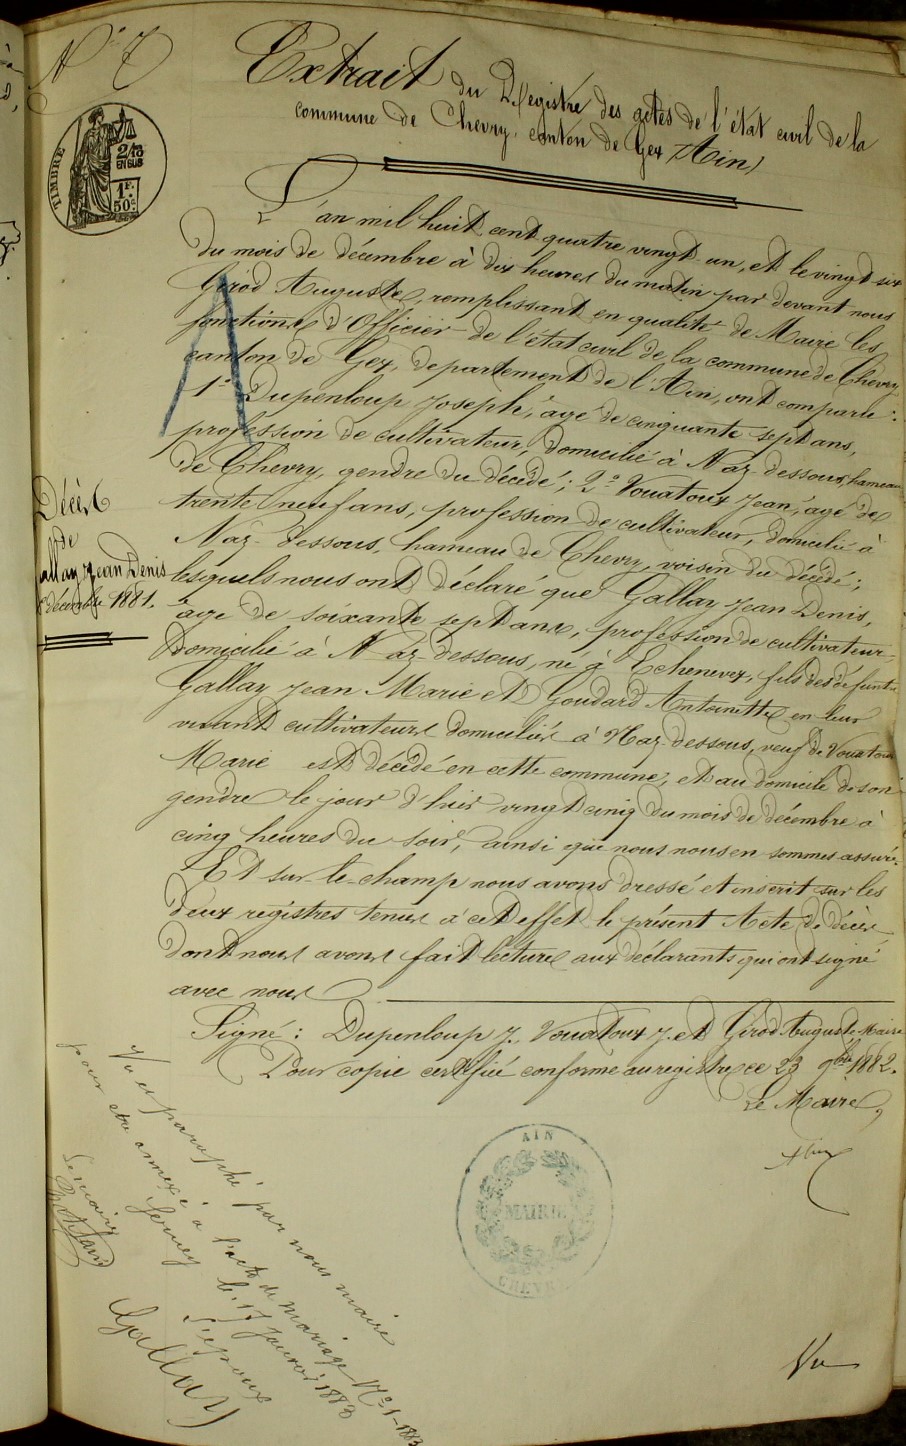 N° 7
TIMBRE
2/10
EN SUS
1F.
50c
Extrait du Registre des actes de l'état civil de la
commune de Chevry, canton de Gex (Ain)
L'an mil huit cent quatre vingt-un, et le vingt-six
du mois de décembre à dix heures du matin par devant nous
Girod Auguste, remplissant en qualité de Maire les
fonctions d'Officier de l'état civil de la commune de Chevry
canton de Gex, département de l'Ain, ont comparu :
1° Dupenloup Joseph, âgé de cinquante sept ans,
profession de cultivateur, domicilié à Naz-dessous, hameau
de Chevry, gendre du décédé ; 2° Vouatoux Jean, âgé de
trente neuf ans, profession de cultivateur, domicilié à
Naz-dessous, hameau de Chevry, voisin du décédé ;
lesquels nous ont déclaré que Gallay Jean Denis,
âgé de soixante sept ans, profession de cultivateur,
domicilié à Naz-dessous, né à Echenevex, fils des défunts
Gallay Jean Marie et Goudard Antoinette en leur
vivant cultivateurs domiciliés à Naz-dessous, veuf de Vouatoux
Marie est décédé en cette commune, et au domicile de son
gendre le jour d'hier vingt cinq du mois de décembre à
cinq heures du soir, ainsi que nous nous en sommes assuré.
Et sur-le-champ nous avons dressé et inscrit sur les
deux registres tenus à cet effet le présent Acte de décès
dont nous avons fait lecture aux déclarants qui ont signé
avec nous
Signé : Dupenloup J., Vouatoux J. et Girod Auguste Maire
Pour copie certifiée conforme au registre ce 23 9bre 1882.
Le Maire,
Décès
de
Gallay Jean Denis
décembre 1881.
A
AIN
MAIRIE
CHEVRY
Vu et paraphé par nous maire
pour être annexé à l'acte de mariage N° 1-1883
le 17 Janvier 1883
Le maire
L'époux
Gallay
Vu